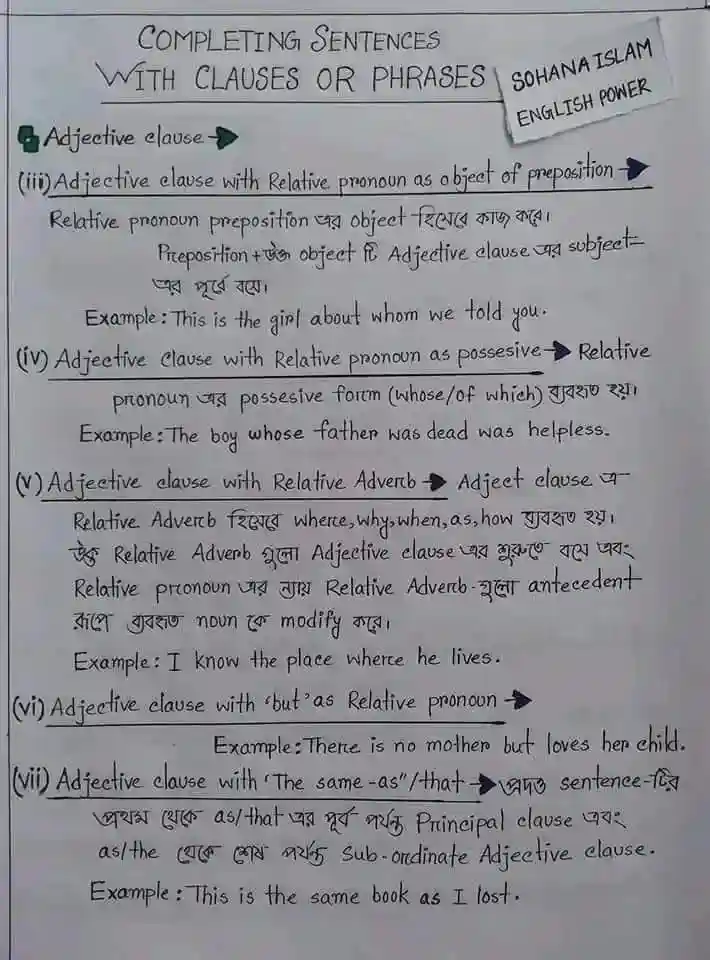 COMPLETING SENTENCES
WITH CLAUSES OR PHRASES
SOHANA ISLAM
ENGLISH POWER
Adjective clause
(iii) Adjective clause with Relative pronoun as object of preposition
Relative pronoun preposition এর object হিসেবে কাজ করে।
Preposition + উক্ত object টি Adjective clause এর subject
এর পূর্বে বসে।
Example: This is the girl about whom we told you.
(iv) Adjective clause with Relative pronoun as possesive Relative
pronoun এর possesive form (whose/of which) ব্যবহৃত হয়।
Example: The boy whose father was dead was helpless.
(v) Adjective clause with Relative Adverb Adject clause এ
Relative Adverb হিসেবে where, why, when, as, how ব্যবহৃত হয়।
উক্ত Relative Adverb গুলো Adjective clause এর শুরুতে বসে এবং
Relative pronoun এর ন্যায় Relative Adverb-গুলো antecedent
রূপে ব্যবহৃত noun কে modify করে।
Example: I know the place where he lives.
(vi) Adjective clause with 'but' as Relative pronoun
Example: There is no mother but loves her child.
(vii) Adjective clause with 'The same -as"/that প্রদত্ত sentence-টির
প্রথম থেকে as/that এর পূর্ব পর্যন্ত Principal clause এবং
as/the থেকে শেষ পর্যন্ত Sub-ordinate Adjective clause.
Example: This is the same book as I lost.